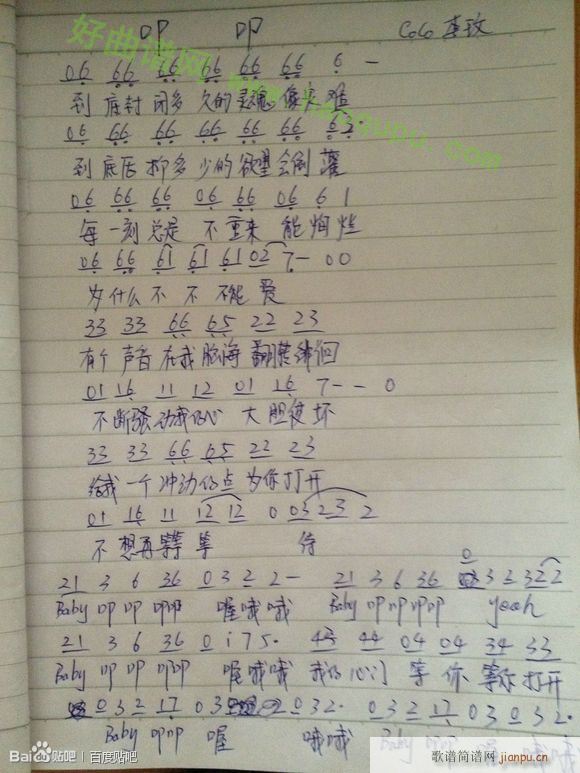 叩 叩 CoCo 李玟
06 66 66 66 66 66 6 —
到底封闭多久的灵魂像灾难
06 66 66 66 66 66 63·
到底压抑多少的欲望会倒灌
06 66 66 06 66 06 6 1
每一刻总是 不重来 能绚烂
06 66 61 61 61 02 7 — 0 0
为什么不 不 不能 爱
33 33 66 65 22 23
有个声音在我脑海翻转徘徊
01 16 11 12 01 16 7 — — 0
不断骚动我的心 大胆使坏
33 33 66 65 22 23
给我一个冲动的点为你打开
01 16 11 12 12 0 03 23 2
不想再等等 待
0
21 3 6 36 0 3 2 2 — 21 3 6 36 3 2 3 2 2
Baby 叩 叩 叩叩 喔哦哦 Baby 叩叩叩叩 yeah
21 3 6 36 0 i 7 5· 44 44 04 04 34 33
Baby 叩 叩 叩叩 喔哦哦 我的心门 等 你 等你 打开
0 3 2 17 0 3 2 0 3 2· 0 3 2 17 0 3 0 3 2·
Baby 叩叩 喔 哦哦 Baby 叩叩 哦哦
好曲谱网
haoqupu.com
Baidu贴吧 | 百度贴吧
歌谱简谱网
jianpu.cn